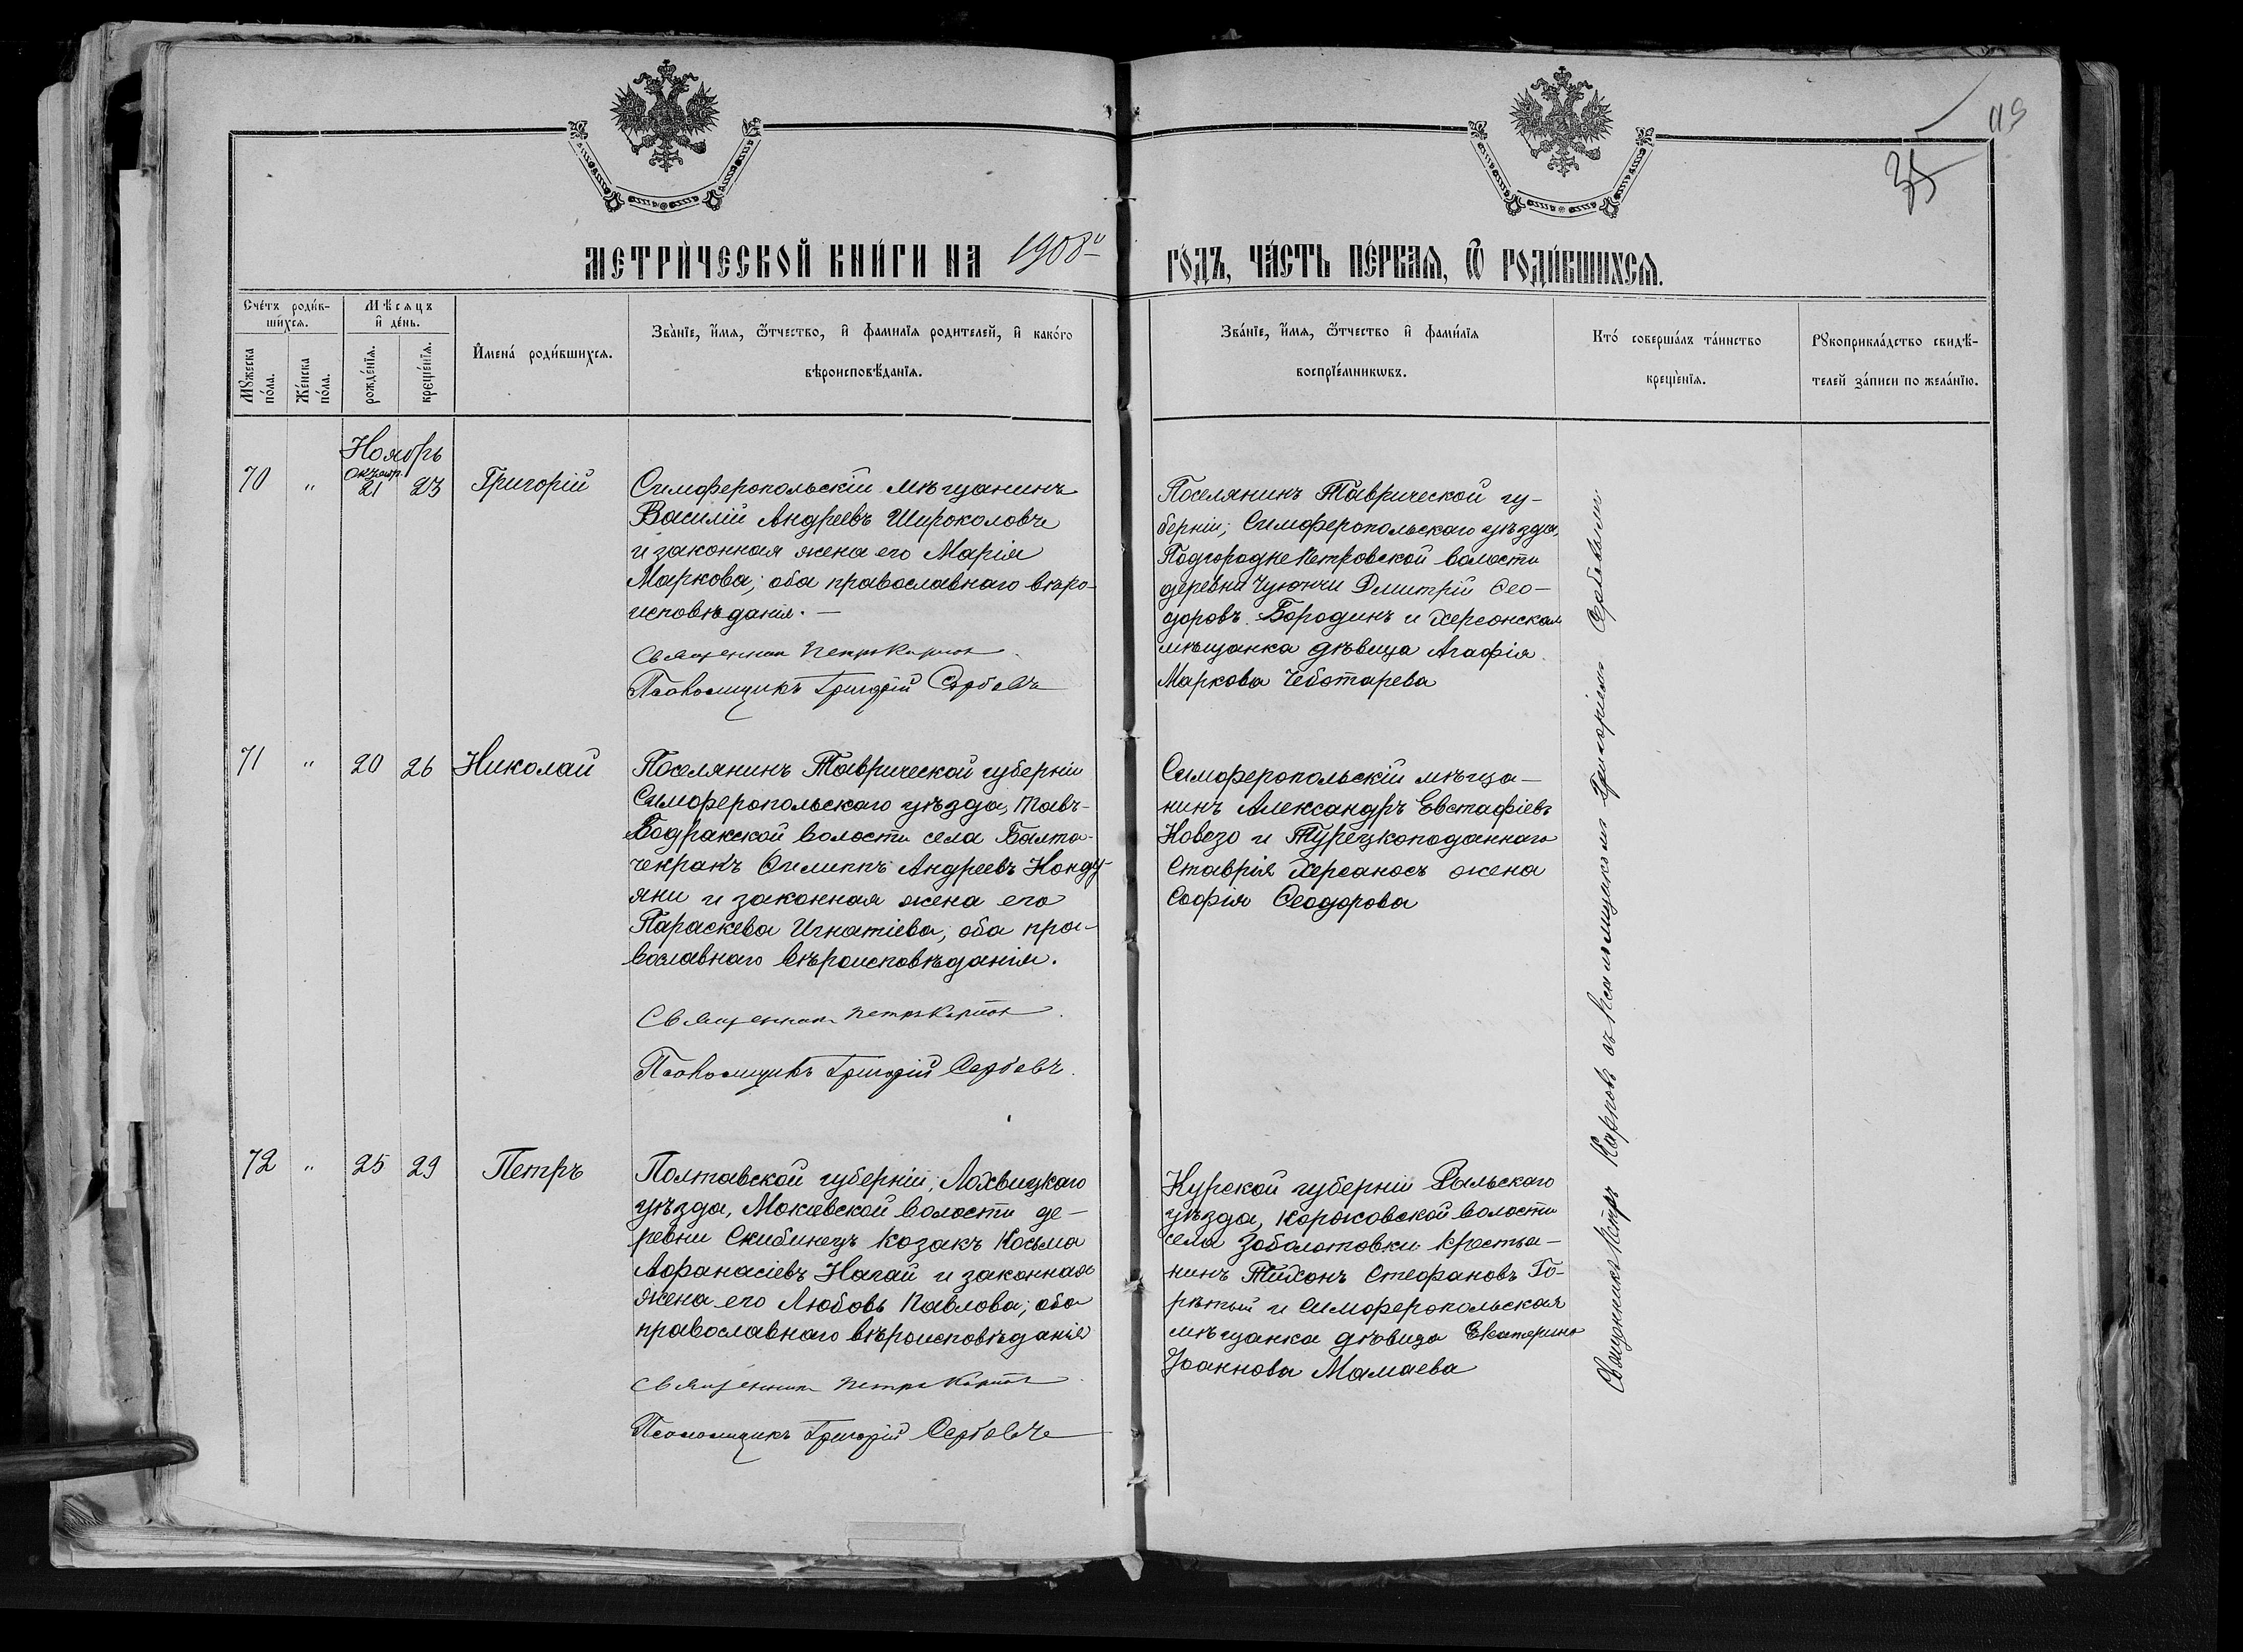 119
35
МЕТРИЧЕСКОЙ КНИГИ НА 1908й ГОДЪ, ЧАСТЬ ПЕРВАЯ, Ѿ РОДИВШИХСЯ.
Счетъ родив-
шихся.
Мѣсяцъ
и день.
Мꙋжеска
пола.
Женска
пола.
рожденїя.
крещенїя.
Имена родившихся.
Званїе, имя, ѿчество, и фамилїя родителей, и какого
вѣроисповѣданїя.
Званїе, имя, ѿчество и фамилїя
воспрїемникѡвъ.
Кто совершалъ таинство
крещенїя.
Рꙋкоприкладство свидѣ-
телей записи по желанїю.
Ноябрь
70 " Октябр. 21 23 Григорій
Симферопольскій мѣщанинъ
Василій Андреевъ Широколовъ
и законная жена его Марія
Маркова; оба православнаго вѣро-
исповѣданія. —
Священникъ Петръ Карповъ
Псаломщикъ Григорій Сербовъ
Поселянинъ Таврической гу-
берніи, Симферопольскаго уѣзда,
Подгородне Петровской волости
деревни Чуюнчи Дмитрій Ѳео-
доровъ Бородинъ и Херсонская
мѣщанка дѣвица Агафія
Маркова Чеботарева
71 " 20 26 Николай
Поселянинъ Таврической губерніи
Симферопольскаго уѣзда, Тавъ-
Бодракской волости села Балта-
чекракъ Филиппъ Андреевъ Конду-
яни и законная жена его
Параскева Игнатіева, оба пра-
вославнаго вѣроисповѣданія.
Священникъ Петръ Карповъ
Псаломщикъ Григорій Сербовъ.
Симферопольскій мѣща-
нинъ Александръ Евстафіевъ
Ковезо и Турецкоподаннаго
Ставрія Херсаносъ жена
Софія Ѳеодорова
72 " 25 29 Петръ
Полтавской губерніи, Лохвицкаго
уѣзда, Мокіевской волости де-
ревни Скибинецъ козакъ Косьма
Афанасіевъ Нагай и законная
жена его Любовь Павлова; оба
православнаго вѣроисповѣданія
Священникъ Петръ Карповъ
Псаломщикъ Григорій Сербовъ
Курской губерніи Рыльскаго
уѣзда, Коржовской волости
села Заболотовки крестья-
нинъ Тихонъ Стефановъ Го-
рѣтый и Симферопольская
мѣщанка дѣвица Екатерина
Іоаннова Мамаева
Священникъ Петръ Карповъ съ псаломщикомъ Григоріемъ Сербовымъ